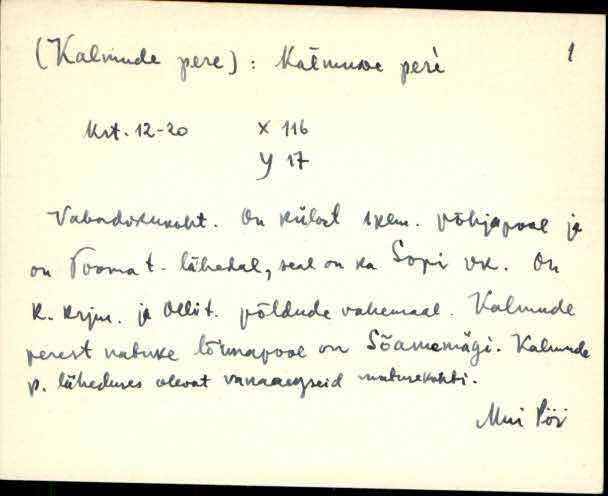 (Kalmude pere) : Kaĕmuve perè 1
Krt. 12-20 X 116
Y 17
Vabadikukoht. On külast 1 km. põhjapool ja
on t. lähedal, seal on ka Sopi vk. On
k. krjm. ja t. põldude vahemaal. Kalmude
perest natuke lõunapool on Sõamemägi. Kalmude
p. läheduses olevat vanaaegseid matusekohti.